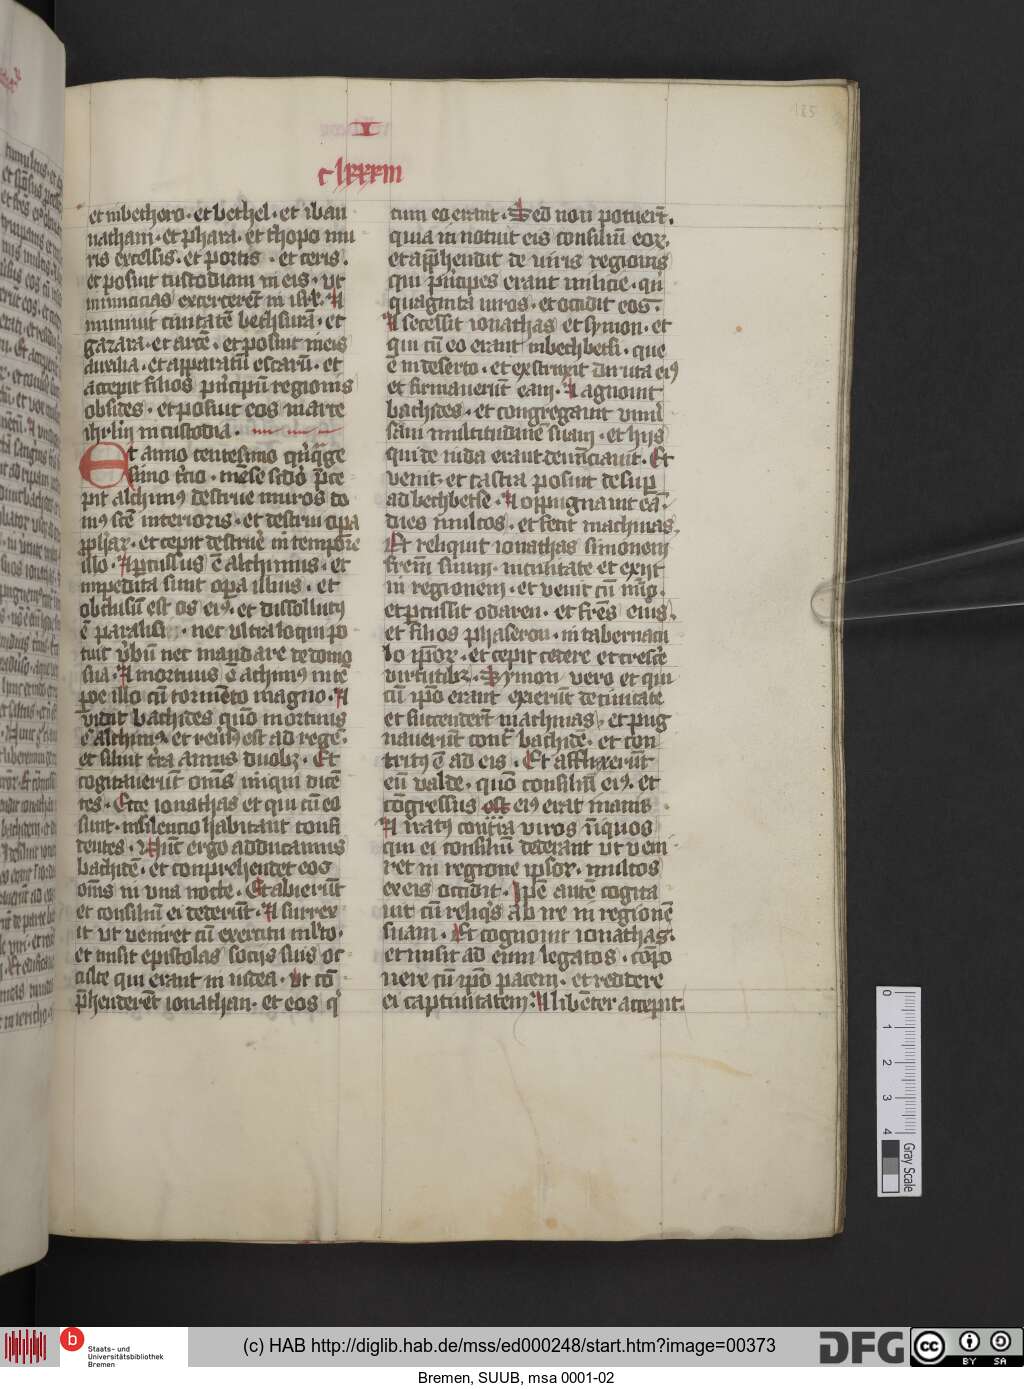 I
clxxxiii
185
et in bethoro · et bethel · et iban
natham · et phara · et thopo mu
ris excelsis · et portis · et ceris .
et posuit custodiam in eis · ut
inimicicias exercerēt in isrl · A
muniuit ciuitatē bechsurā · et
gazara · et arcē · et posuit in eis
auxilia · et apparatū escarū · et
accepit filios pncipiū regionis
obsides · et posuit eos in arce
in custodia ·
Et anno centesimo qnq̄ge
simo tcio · mēse scdo pce
pit alchimꝰ destrue muros do
mꝰ scē interioris · et destrui opa
pphaꝝ · et cepit destrue in tempore
illo · A pcussus ē alchimus · et
impedita sunt opa illius · et
obclusū est os eiꝰ · et dissolutꝰ
ē paralisi · nec ultra loqui po
tuit ubū nec mandare de domo
sua · A mortuus ē achimꝰ in tē
poe illo cū tormēto magno · A
vidit bachides quō mortuus
ē alchimꝰ · et reuisꝰ est ad regē ·
et siluit tra annis duobꝫ · Et
cogitauerūt omēs iniqui dicē
tes · Ecce ionathas et qui cū eo
sunt · in silencio habitant confi
dentes · Nūc ergo adducamus
bachidē · et conprehendet eos
omēs in una nocte · Et abierūt
et consiliū ei dederūt · A surrex
it ut veniret cū exercitu mlto ·
et misit epistolas socijs suis oc
culte qui erant in iudea · ut cō
phenderēt ionathan · et eos q
cum eo erant · Sed non potuert .
quia innotuit eis consiliū eoꝝ .
et apphendit de viris regionis
qui pncipes erant milicie · qn
quaginta viros · et occidit eos ·
A secessit ionathas et symon · et
qui cū eo erant in bechbessi · que
ē in deserto · et exstruxit diruta eiꝰ
et firmauerūt eam · A agnouit
bachides · et congregauit vniū
sam multitudinē suam · et hijs
qui de iuda erant denūciauit · Et
venit · et castra posuit desup
ad bechbesse · A oppugnauit eā ·
dies multos · et fecit machinas ,
Et reliquit ionathas simonem
frem suum · in ciuitate et exiit
in regionem · et venit cū nūo ·
et pcussit odaren · et fres eius ·
et filios phaseron · in tabernacu
lo ipoꝝ · et cepit cedere et cresce
virtutibꝫ · Symon vero et qui
cū ipo erant exierūt de ciuitate
et succendert machinas , et pug
nauerūt cont bachidē · et con
tritꝰ ē ad eis · Et afflixerūt
eū valde · quō consiliū eiꝰ · et
cōgressus est eiꝰ erat inanis ·
A iratꝰ contra viros iniquos
qui ei consiliū dederant ut veni
ret in regione ipsoꝝ · multos
ex eis occidit · Ipe autē cogita
uit cū reliqis abire in regionē
suam · Et cognouit ionathas ·
et misit ad eum legatos · cōpo
nere cū ipo pacem · et reddere
ei captiuitatem · A libēter accepit ·
0 1 2 3 4
Gray Scale
Staats- und
Universitätsbibliothek
Bremen
(c) HAB http://diglib.hab.de/mss/ed000248/start.htm?image=00373
DFG
CC BY SA
Bremen, SUUB, msa 0001-02